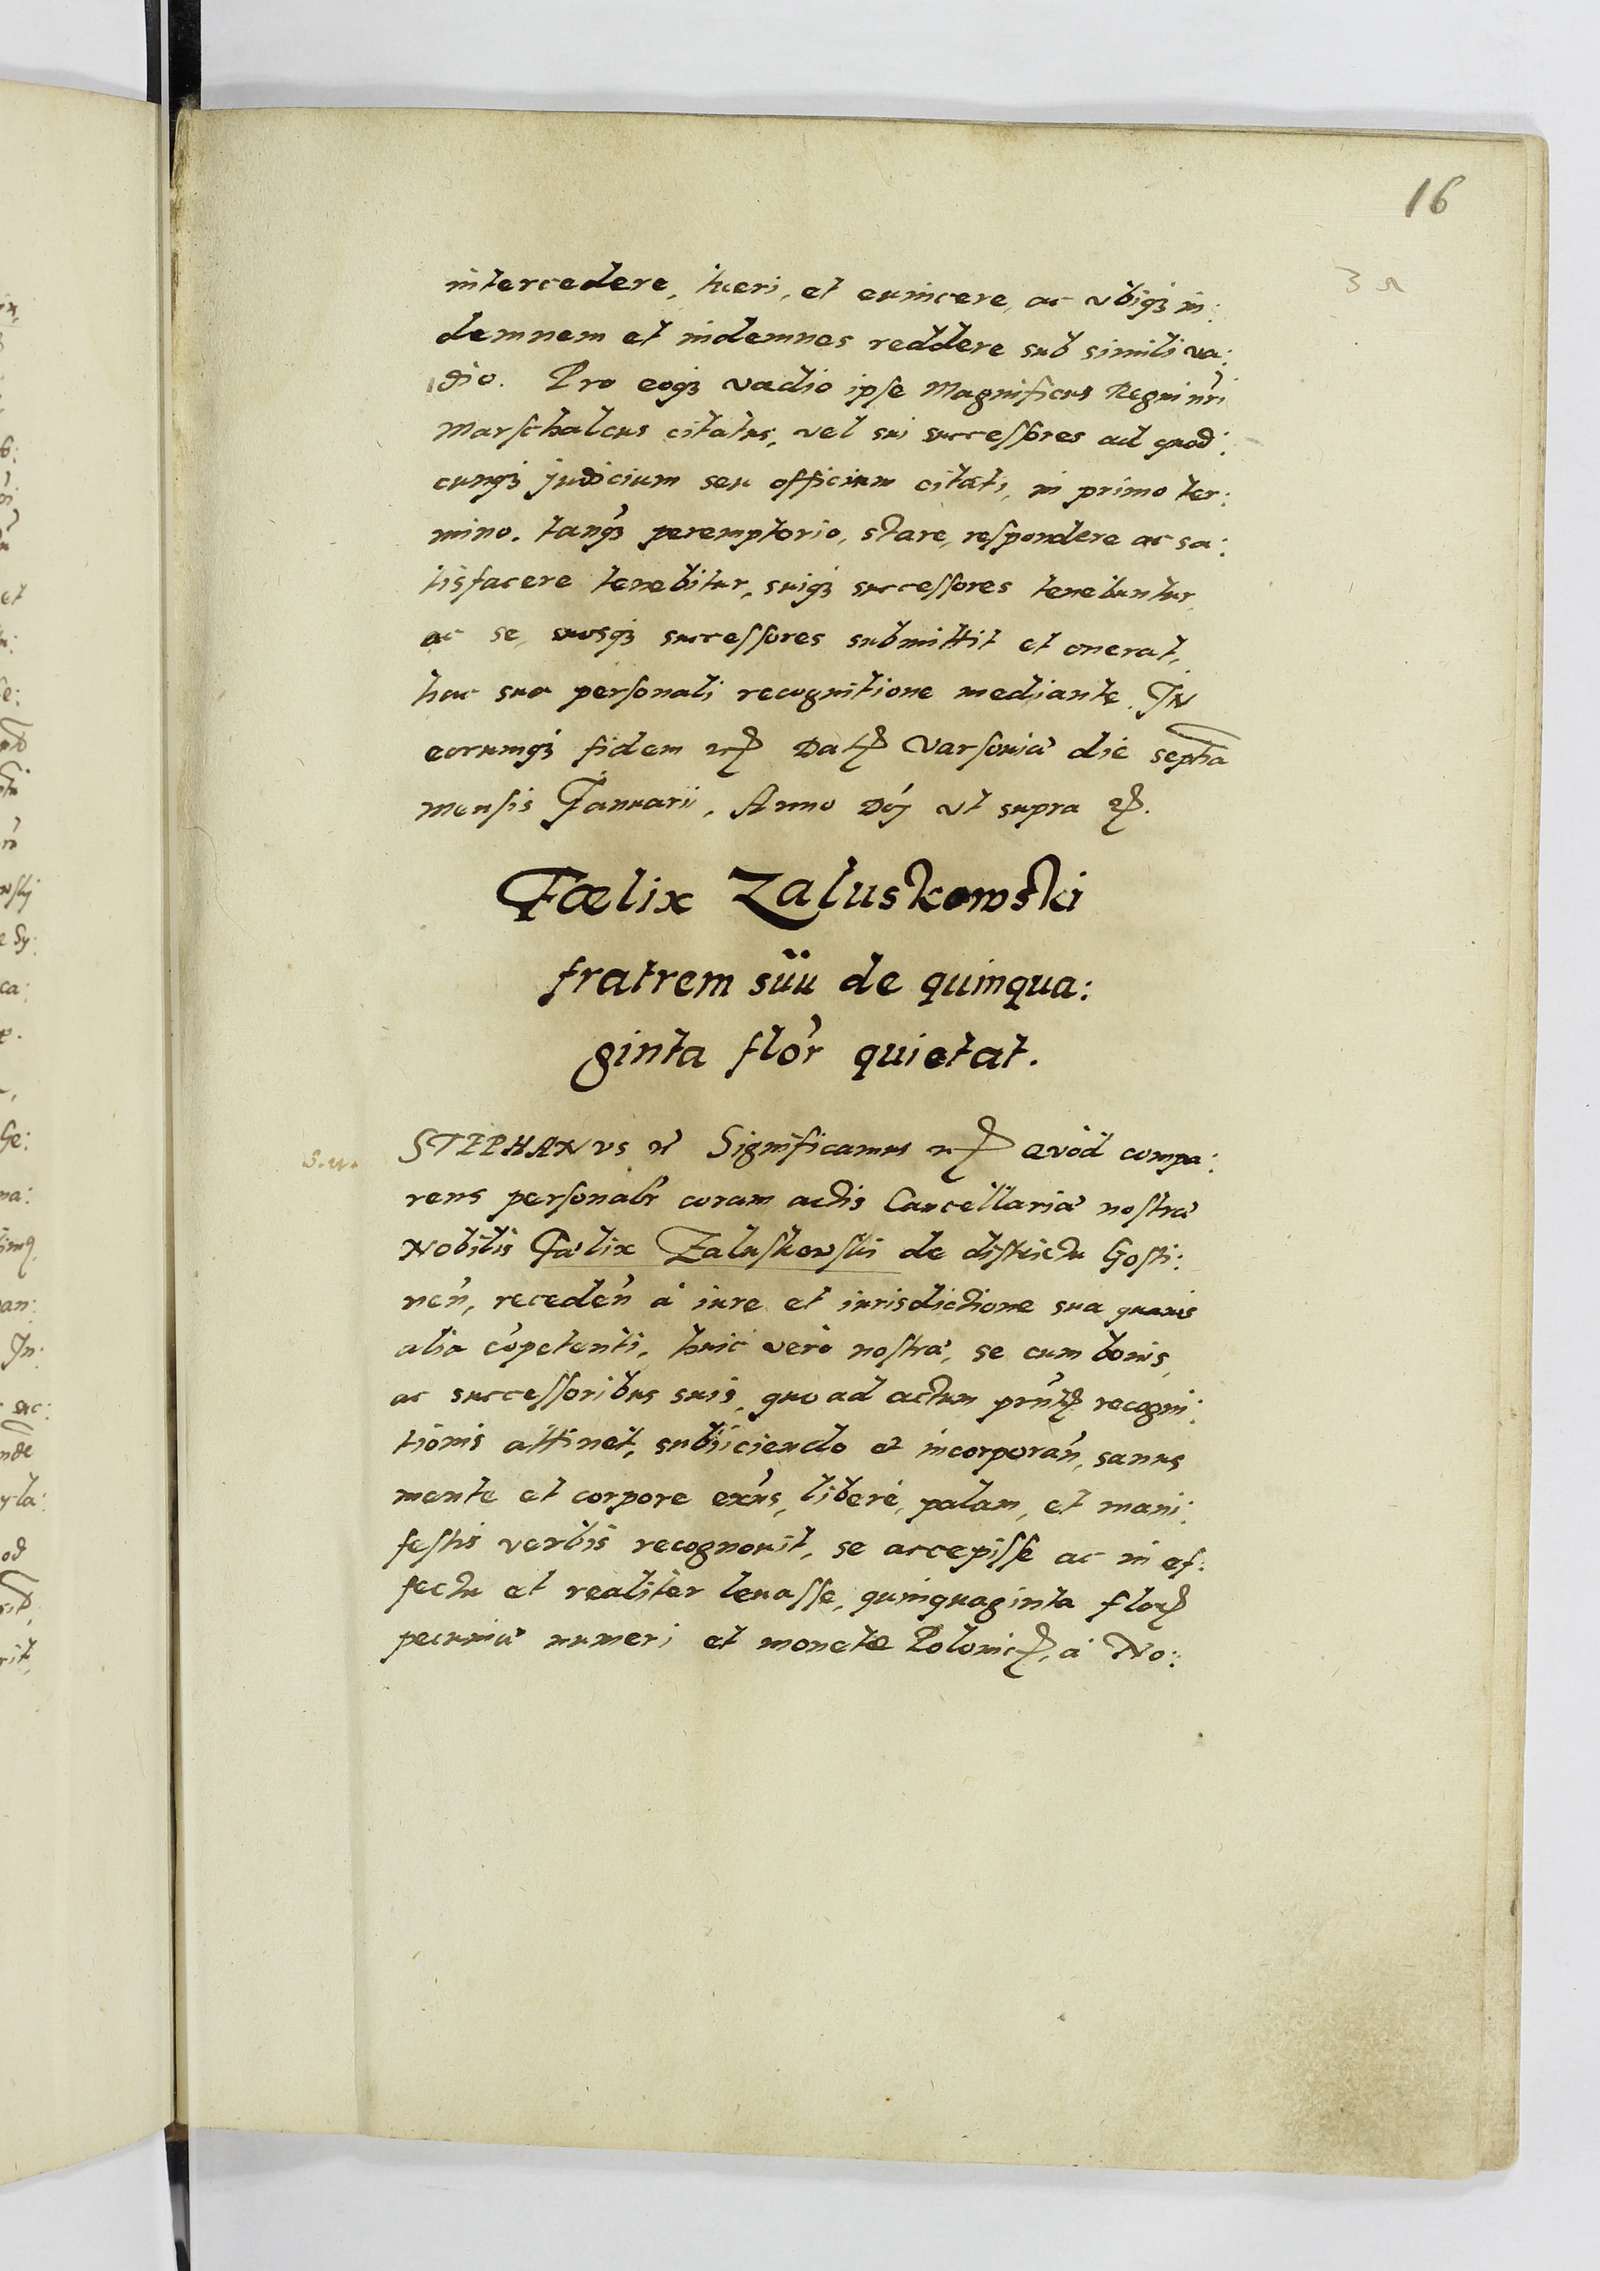 16
intercedere, tueri, et euincere, ac vbiq3 in:
demnem et indemnes reddere sub simili va:
dio. Pro eoq3 vadio ipse Magnificus Regni nri
Marschalcus citatus, vel sui successores ad quod:
cunq3 judicium seu officium citati, in primo ter:
mino, tanq3 peremptorio, stare, respondere ac sa:
tisfacere tenebitur, suiq3 successores tenebuntur,
ac se, suosq3 successores submittit et onerat,
hac sua personali recognitione mediante. In
eorumq3 fidem Dat Varsouiæ die septia
mensis Januarii, Anno Dni vt supra
Fœlix Zaluskowski
fratrem suu de quinqua:
ginta flor quietat.
STEPHANVS Significamus Quod compa:
rens personalr coram actis Cancellariæ nostræ
Nobilis Fœlix Zaluskowski de districtu Gosti:
nen, receden à iure et iurisdictione sua quauis
alia copetenti, huic verò nostræ, se cum bonis,
ac successoribus suis, quo ad actum prnt recogni:
tionis attinet, subiiciendo et incorporan, sanus
mente et corpore exns, liberè, palam, et mani:
festis verbis recognouit, se accepisse ac in ef:
fectu et realiter leuasse, quinquaginta flor
pecuniæ numeri et monetæ Polonic, à No: